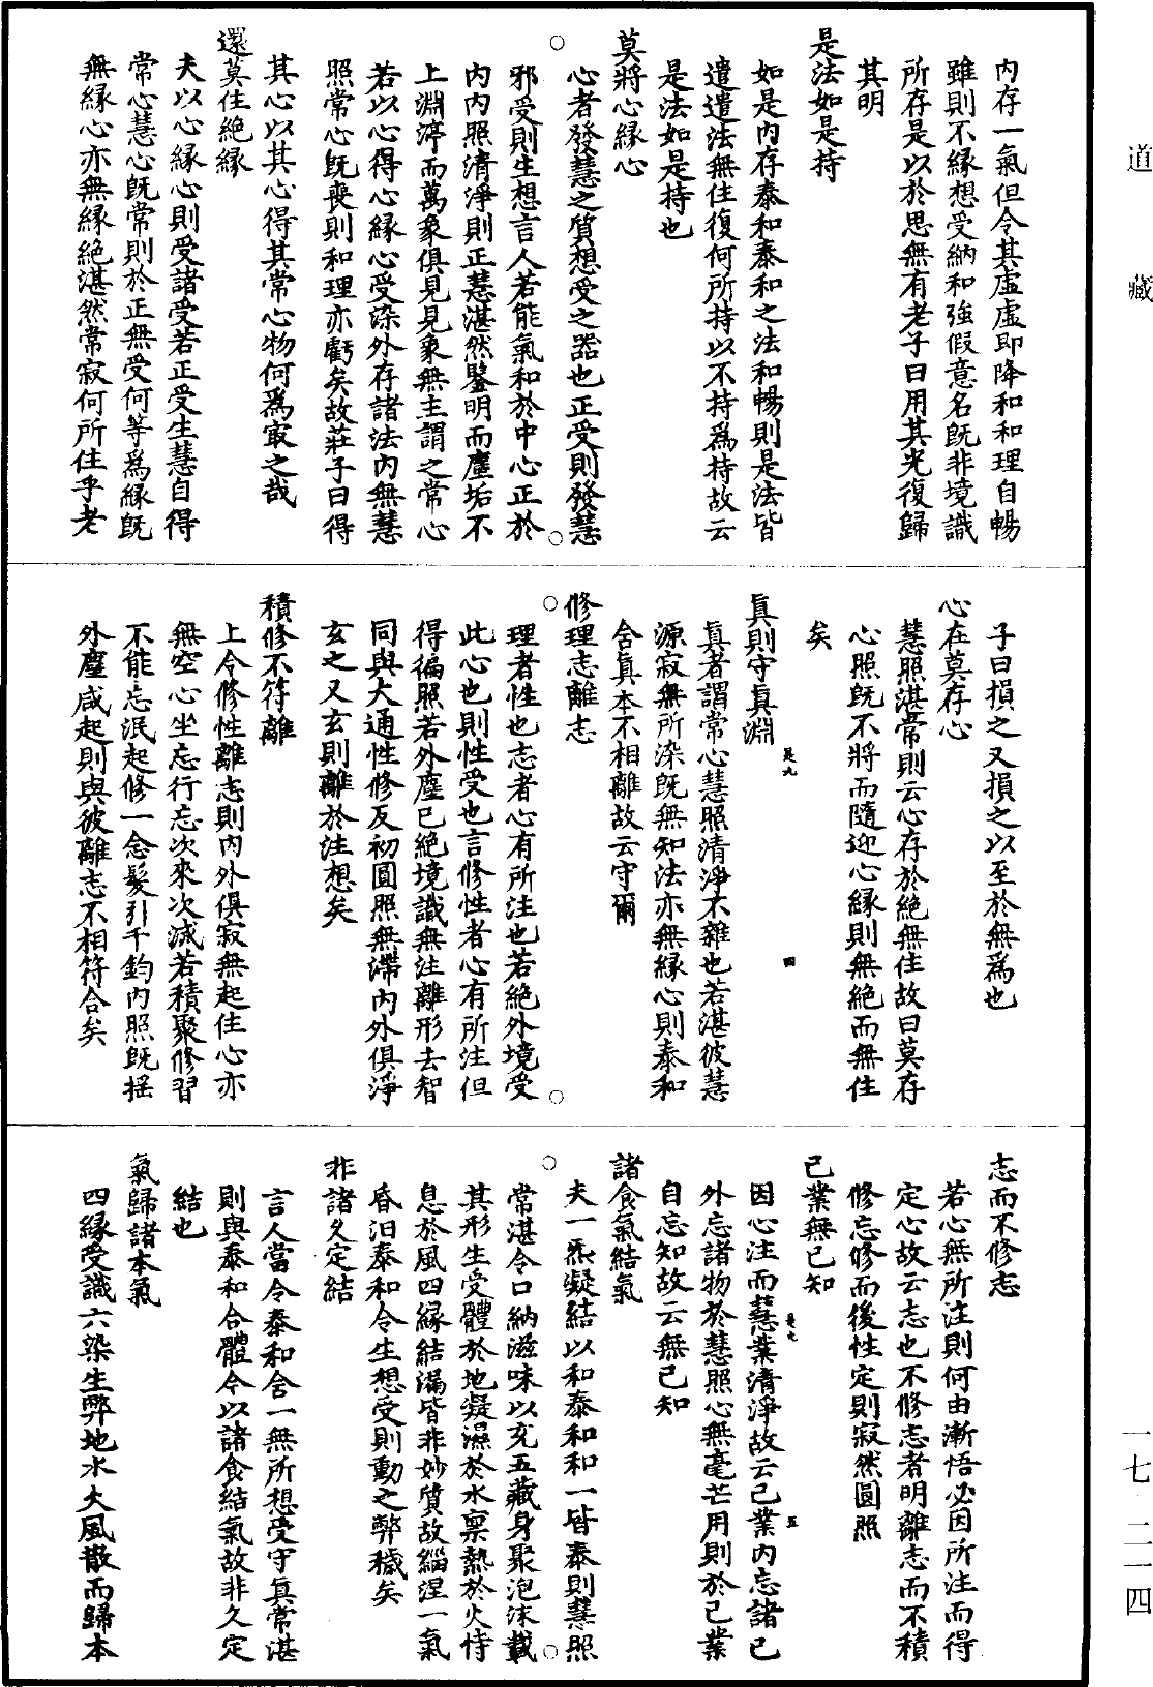 道藏
內存一氣但令其虛虛即降和和理自暢
雖則不緣想受納和強假意名既非境識
所存是以於思無有老子曰用其光復歸
其明
是法如是持
如是內存泰和泰和之法和暢則是法皆
遣遣法無住復何所持以不持爲持故云
是法如是持也
莫將心緣心
心者發慧之質想受之器也正受則發慧
邪受則生想言人若能氣和於中心正於
內內照清淨則正慧湛然鑒明而塵垢不
上淵渟而萬象俱見見象無主謂之常心
若以心得心緣心受染外存諸法內無慧
照常心既喪則和理亦虧矣故莊子曰得
其心以其心得其常心物何爲㝡之哉
還莫住絕緣
夫以心緣心則受諸受若正受生慧自得
常心慧心既常則於正無受何等爲緣既
無緣心亦無緣絕湛然常寂何所住乎老
子曰損之又損之以至於無爲也
心在莫存心
慧照湛常則云心存於絕無住故曰莫存
心照既不將而隨迎心緣則無絕而無住
矣
眞則守眞淵
眞者謂常心慧照清淨不雜也若湛彼慧
源寂無所染既無知法亦無緣心則泰和
含眞本不相離故云守爾
修理志離志
理者性也志者心有所注也若絕外境受
此心也則性受也言修性者心有所注但
得徧照若外塵已絕境識無注離形去智
同與大通性修反初圓照無滯內外俱淨
玄之又玄則離於注想矣
積修不符離
上令修性離志則內外俱寂無起住心亦
無空心坐忘行忘次來次滅若積聚修習
不能忘泯起修一念髮引千鈞內照既搖
外塵咸起則與彼離志不相符合矣
志而不修志
若心無所注則何由漸悟必因所注而得
定心故云志也不修志者明離志而不積
修忘修而後性定則寂然圓照
己業無己知
因心注而慧業清淨故云己業內忘諸己
外忘諸物於慧照心無毫芒用則於己業
自忘知故云無己知
諸食氣結氣
夫一炁凝結以和泰和和一皆泰則慧照
常湛令口納滋味以充五藏身聚泡沫載
其形生受體於地凝濕於水稟熱於火恃
息於風四緣結漏皆非妙質故緇涅一氣
昏汩泰和令生想受則動之弊穢矣
非諸久定結
言人當令泰和含一無所想受守眞常湛
則與泰和合體今以諸食結氣故非久定
結也
氣歸諸本氣
四緣受識六染生弊地水火風散而歸本
一七 二一四